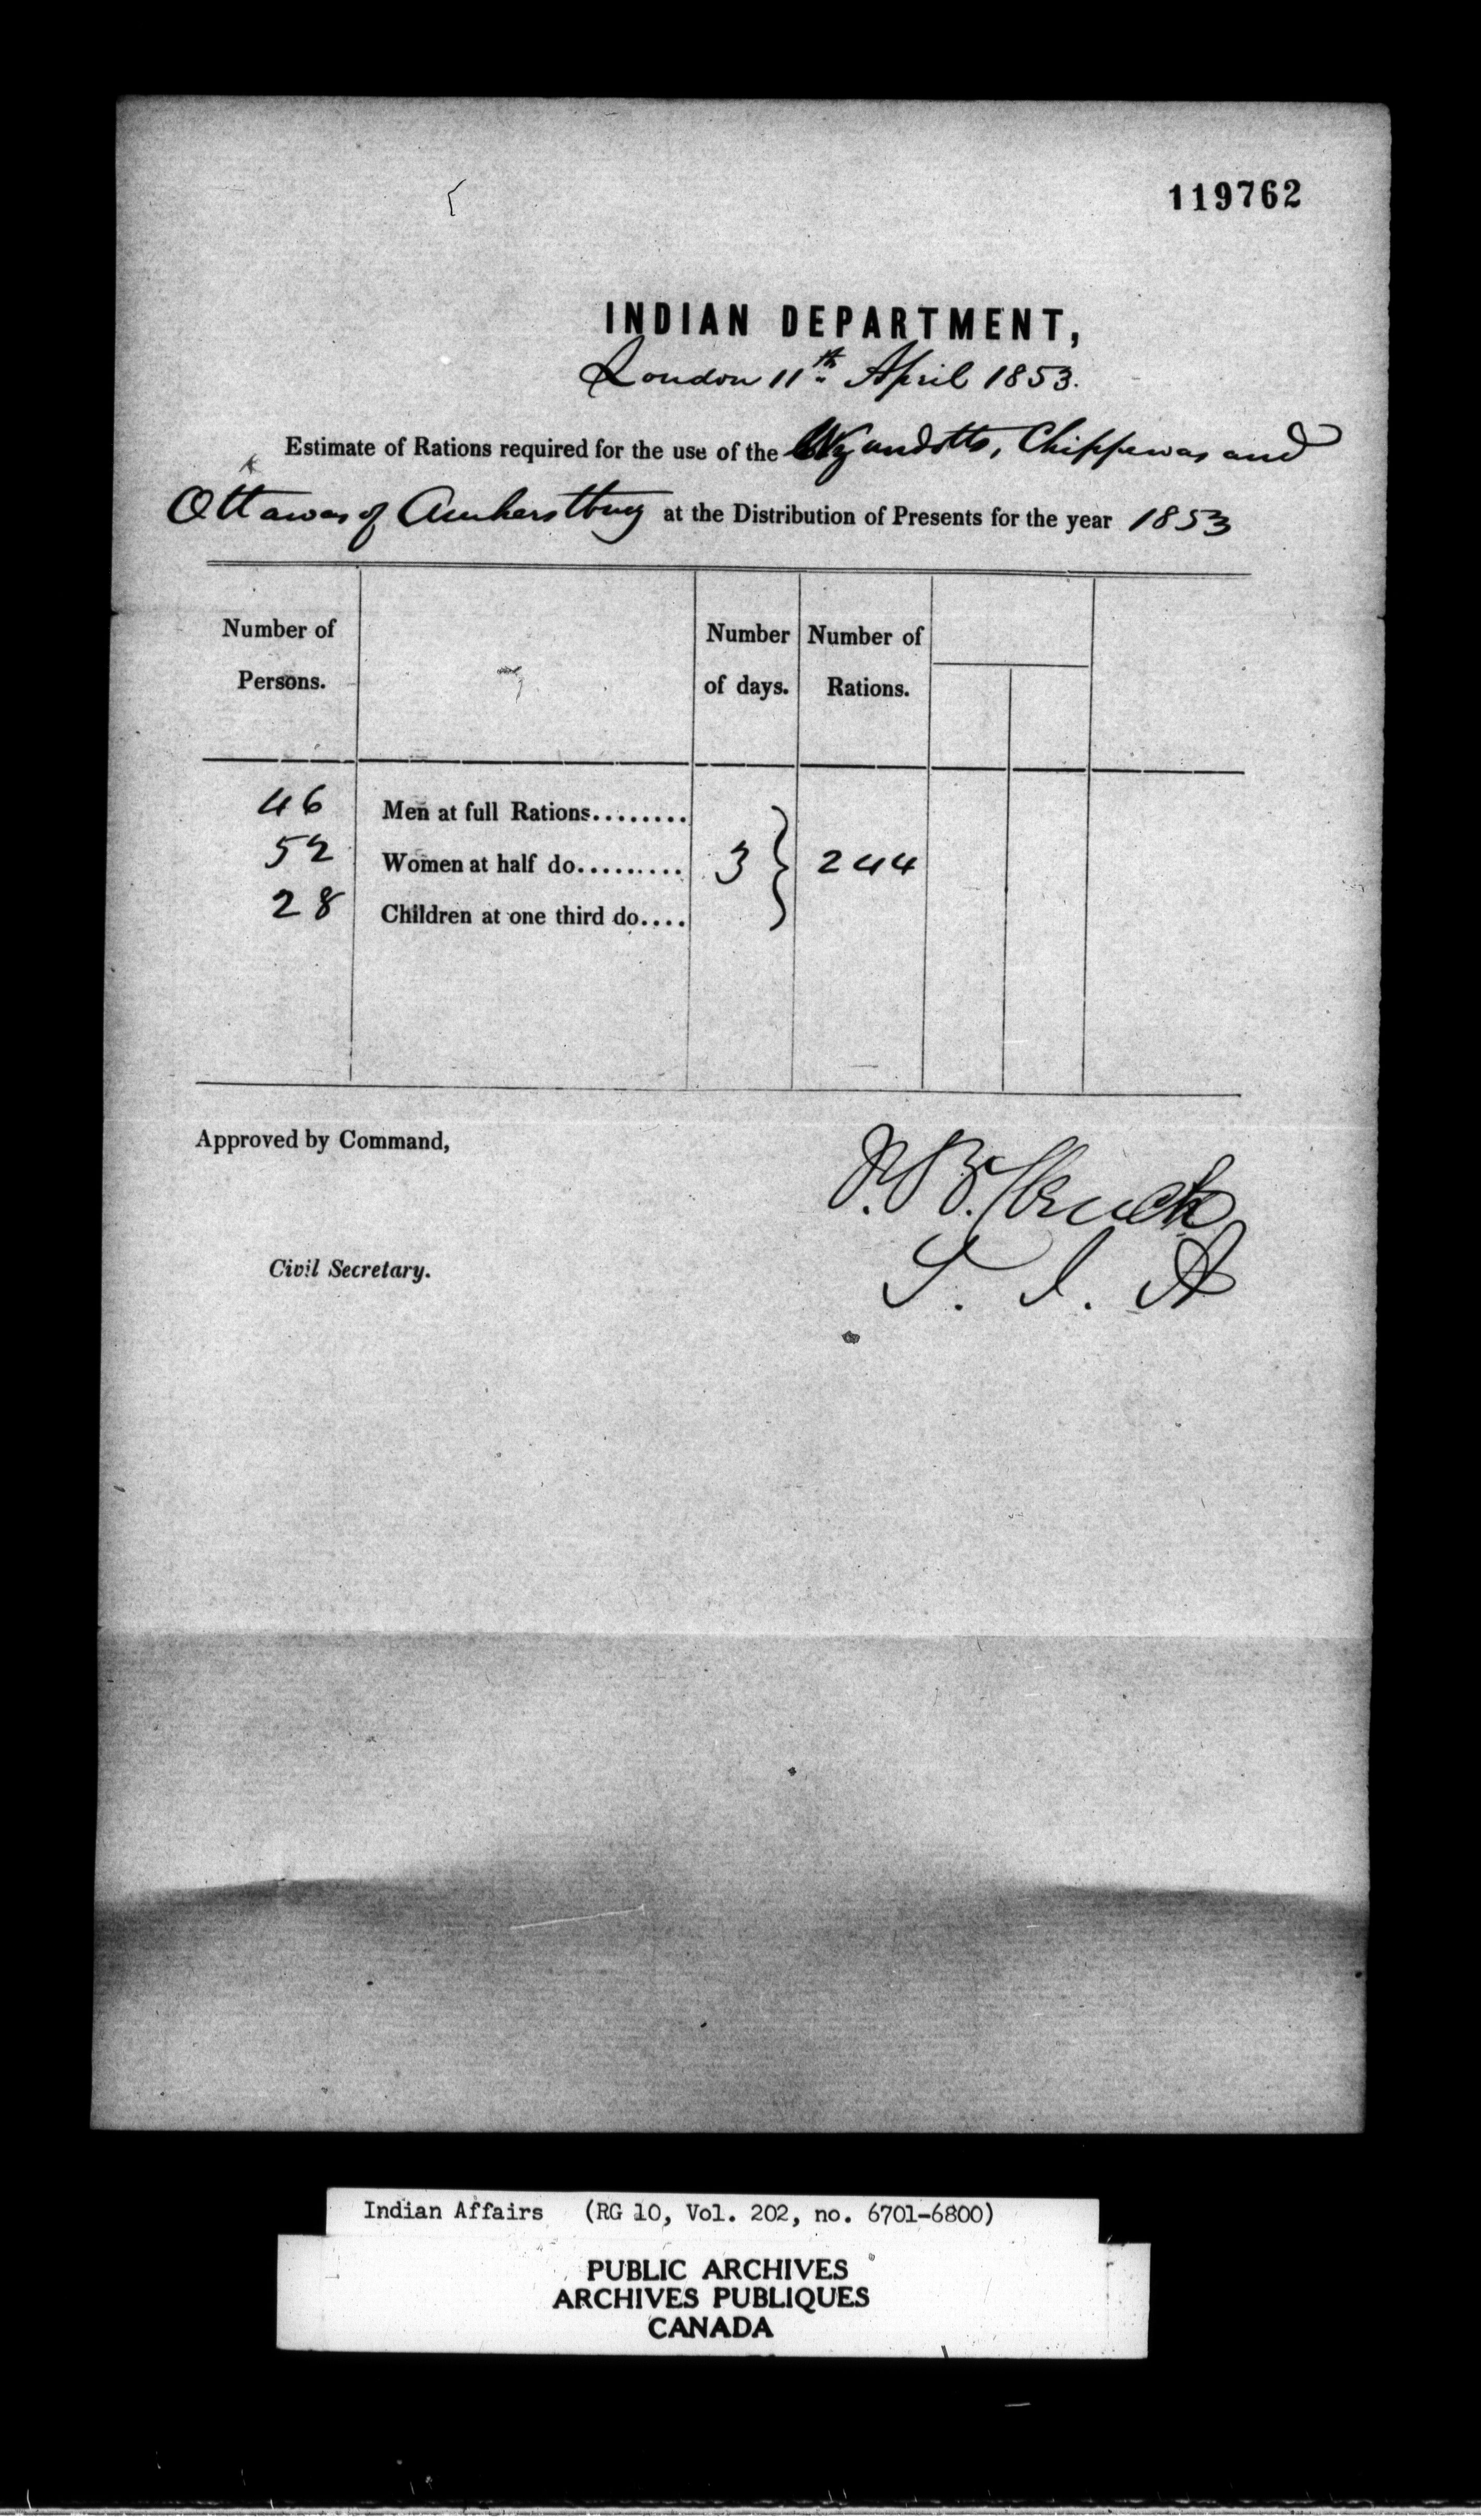 119762
INDIAN DEPARTMENT,
London 11th April 1853.
Estimate of Rations required for the use of the Wyandotts, Chippewas and
Ottawas of Amherstburg at the Distribution of Presents for the year 1853
Number of Persons. Number of days. Number of Rations.
46 Men at full Rations........
52 Women at half do......... 3 } 244
28 Children at one third do....
Approved by Command,
Civil Secretary.
S. I. A
Indian Affairs (RG 10, Vol. 202, no. 6701-6800)
PUBLIC ARCHIVES
ARCHIVES PUBLIQUES
CANADA